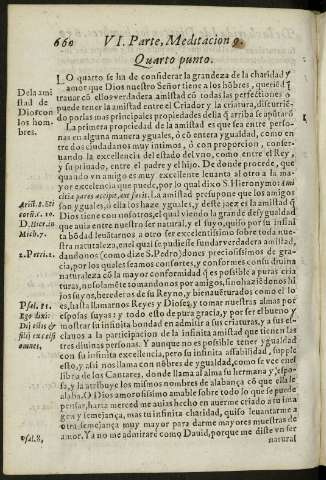 660 VI. Parte, Meditacion 9.
Quarto punto.
LO quarto se ha de considerar la grandeza de la charidad y
amor que Dios nuestro Señor tiene a los hõbres, queriédo
trauar cõ ellos verdadera amistad cõ todas las perfectiones q̃
puede tener la amistad entre el Criador y la criatura, discurriẽ-
do por las mas principales propiedades della q̃ arriba se apũtarõ
Dela ami
stad de
Dios con
los hom-
bres.
La primera propiedad de la amistad es que sea entre perso-
nas en alguna manera yguales, ó cõ entera ygualdad, como en
tre dos ciudadanos muy intimos, ó con proporcion, conser-
uando la excelencia del estado del vno, como entre el Rey,
y su priuado, entre el padre y el hijo. De donde procede, que
quando vn amigo es muy excelente leuanta al otro a la ma-
yor excelencia que puede, por lo qual dixo S. Hieronymo: Ami
citia pares accipit, aut facit. La amistad presupone que los amigos
son yguales, ó ella los haze yguales, y deste jaez es la amistad q̃
Dios tiene con nosotros, el qual viendo la grande desygualdad
que auia entre nuestro ser natural, y el suyo, quiso por su infini
ta bõdad leuãtarnos a otro ser excelentissimo sobre toda nue-
stra naturaleza, en el qual se pudiesse fundar verdadera amistad,
dandonos (como dize S. Pedro) dones preciosissimos de gra-
cia, por los quales seamos consortes, y conformes con su diuina
naturaleza cõ la mayor conformidad q̃ es possible a puras cria
turas, no solamẽte tomandonos por amigos, sino haziẽdonos hi
jos suyos, herederos de su Reyno, y bienauẽturados como el lo
es, hasta llamarnos Reyes y Dioses, y tomar nuestras almas por
esposas suyas: y todo esto de pura gracia, y por ser el bueno y
mostrar su infinita bondad en admitir a sus criaturas, y a sus es-
clauos a la participacion de la infinita amistad que tienen las
tres diuinas personas. Y aunque no es possible tener ygualdad
con su infinita excelencia, pero su infinita affabilidad, supple
esto, y assi nos llama con nõbres de ygualdad, como se vee en el
libro de los Cantares, donde llama al alma su hermana y espo-
sa, y la atribuye los mismos nombres de alabança cõ que ella le
alaba. O Dios amorosissimo amable sobre todo lo que se puede
pensar, harta merced me auias hecho en auerme criado a tu ima
gen y semejança, mas tu infinita charidad, quiso leuantarme a
otra semejança muy mayor para darme mayores muestras de
amor. Ya no me admirare como Dauid, porque me diste vn ser
natural
D. Hier. in
Mich. 7.
2. Petri. 1.
Psal. 81.
Ego dixi:
Dij estis &
filij excelsi
omnes.
Psal. 8.